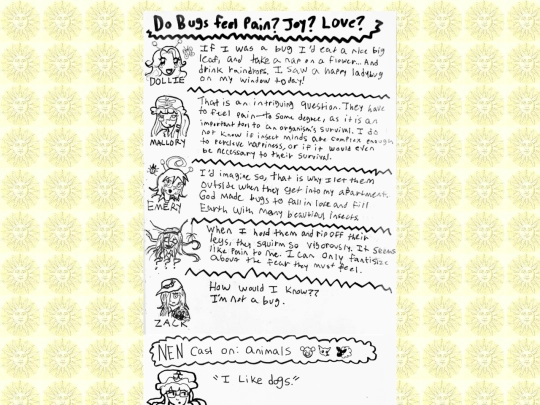 Do Bugs feel Pain? Joy? Love?
If I was a bug I'd eat a nice big
leaf, and take a nap on a flower... And
drink raindrops, I saw a happy ladybug
on my window today!
DOLLIE
That is an intriguing question. They have
to feel pain to some degree, as it is an
important tool to an organism's survival. I do
not know if insect minds are complex enough
to percieve happiness, or if it would even
be necessary to their survival.
MALLORY
I'd imagine so, that is why I let them
outside when they get into my apartment.
God made bugs to fall in love and fill
Earth with many beautiful insects
EMERY
When I hold them and rip off their
legs, they squirm so vigorously. It seems
like pain to me. I can only fantisize
about the fear they must feel.
How would I know??
I'm not a bug.
ZACK
NEN Cast on: Animals
"I Like dogs."